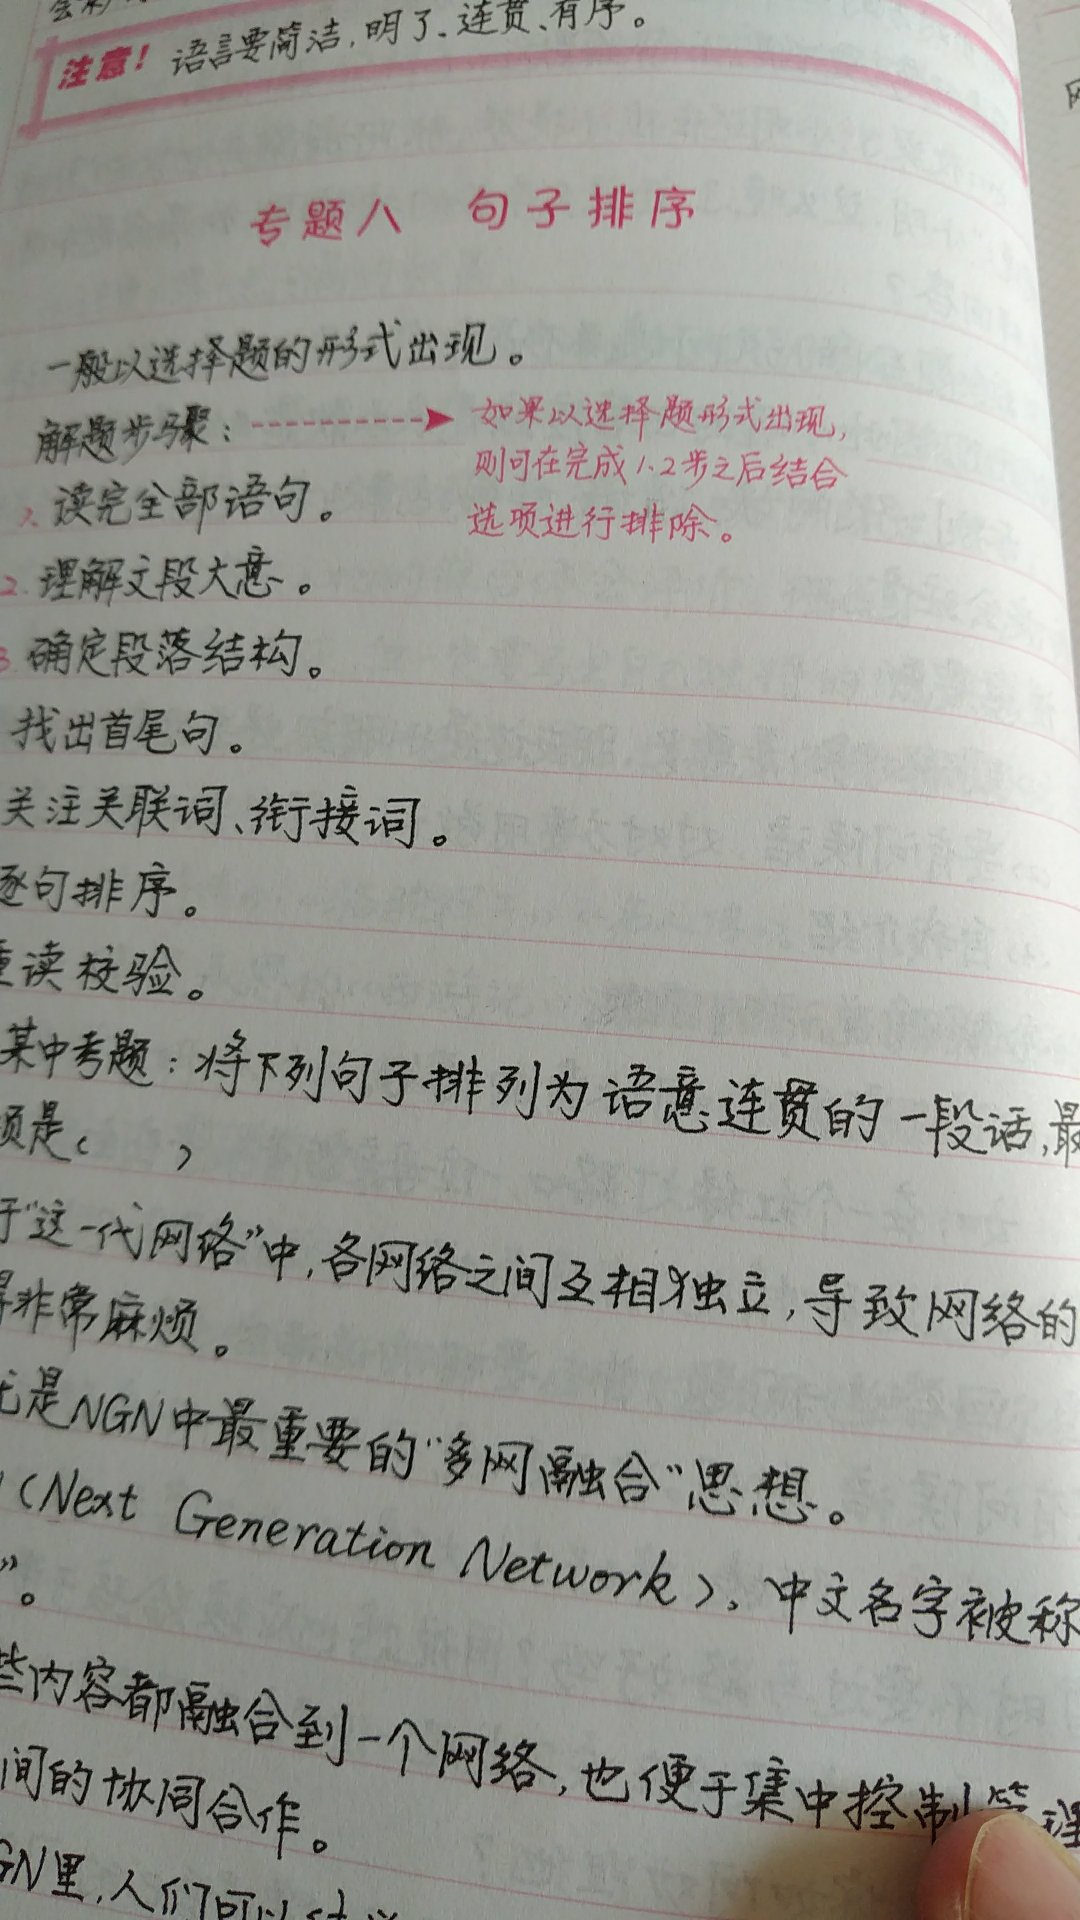 注意！ 语言要简洁，明了、连贯、有序。
专题八 句子排序
一般以选择题的形式出现。
解题步骤：
如果以选择题形式出现，
则可在完成1.2步之后结合
选项进行排除。
1. 读完全部语句。
2. 理解文段大意。
3 确定段落结构。
找出首尾句。
关注关联词、衔接词。
逐句排序。
重读校验。
某中考题：将下列句子排列为语意连贯的一段话，最
项是（ ）
于“这一代网络”中，各网络之间互相独立，导致网络的
得非常麻烦。
是NGN中最重要的“多网融合”思想。
（Next Generation Network）、中文名字被称
”。
些内容都融合到一个网络，也便于集中控制管理
间的协同合作。
GN里，人们可以